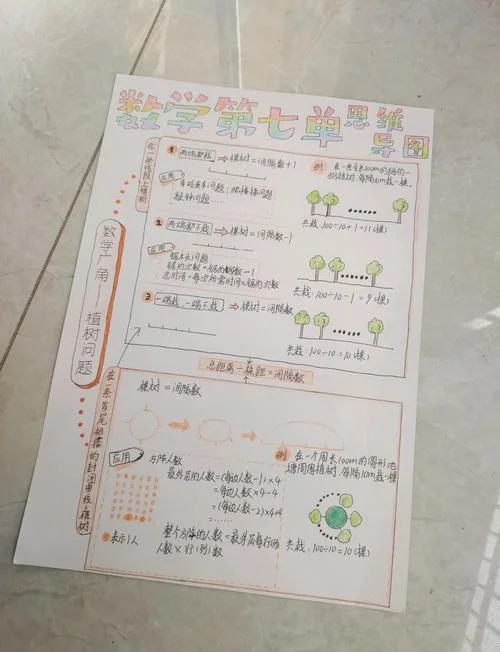 数学第七单思维导图
数学广角——植树问题
在一条线段上植树
1 两端都栽 → 棵树=间隔数+1
应用
车站发车问题; 爬楼梯问题;
敲钟问题
例 在一条长100m的路的一
侧植树,每隔10m栽一棵。
共栽:100÷10+1=11(棵)
2 两端都不栽 → 棵树=间隔数-1
应用
锯木问题
锯的次数=锯的段数-1
总时间=每次所需时间×锯的次数
共栽:100÷10-1=9(棵)
3 一端栽,一端不栽 → 棵树=间隔数
共栽:100÷10=10(棵)
总距离÷棵距=间隔数
在一条首尾相接的封闭曲线上植树
棵树=间隔数
应用 方阵人数
最外层的人数=(每边人数-1)×4
=每边人数×4-4
=(每边人数-2)×4+4
=……
表示1人
整个方阵的人数=最外层每行的
人数×行(列)数
例 在一个周长100m的圆形池
塘周围植树,每隔10m栽一棵
共栽:100÷10=10(棵)